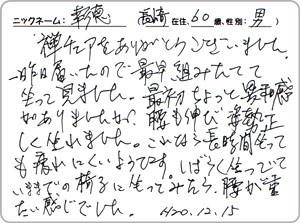 ニックネーム: 幸徳　高崎 在住, 60 歳, 性別: 男 )
禅チェアをありがとうございました。
一昨日届いたので最早組みたてて
坐って見ました。最初ちょっと違和感
がありましたが、腰も伸び姿勢正
しく坐れました。これなら長時間坐って
も疲れにくいようです。しばらく坐ってて
いままでの椅子に坐ってみたら、腰が重
たい感じでした。 H20.12.15